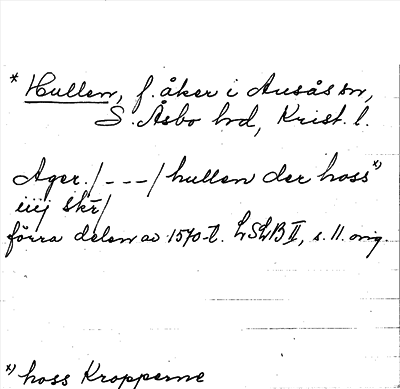 * Hullen, f. åker i Ausås sn,
S. Åsbo hd, Krist. l.
Ager. /---/ hullen der hoss *)
iiij skr/
förra delen av 1570-t. LSLB II, s. 11. orig.
*) hoss Kropperne